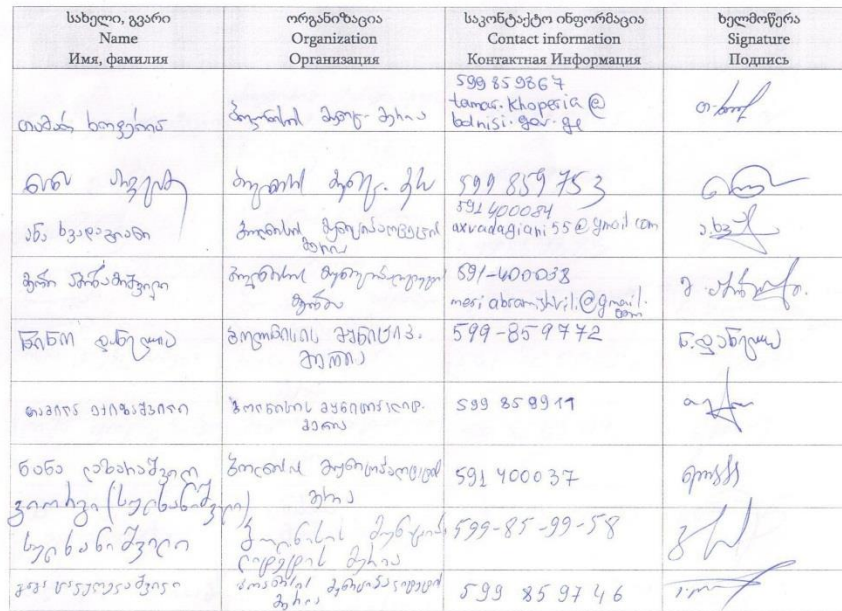 სახელი, გვარი
Name
Имя, фамилия
ორგანიზაცია
Organization
Организация
საკონტაქტო ინფორმაცია
Contact information
Контактная Информация
ხელმოწერა
Signature
Подпись
თამარ ხოფერია
ბოლნისის მუნიც. მერია
599 859867
tamar.khoperia@
bolnisi.gov.ge
ბოლნისის მუნიც.
599 859 753
ანა ხვადაგიანი
ბოლნისის მუნიციპალიტეტის
მერია
591400084
axvadagiani55@gmail.com
მერი აბრამიშვილი
ბოლნისის მუნიციპალიტეტი
მერია
591-400038
meriabramishvili@gmail.
com
ნინო დანელია
ბოლნისის მუნიციპ.
მერია
599-859772
ნ.დანელია
თამილა
ბოლნისის მუნიციპალიტ.
მერია
599 859911
ნანა ლაზარაშვილი
ბოლნისის მუნიციპალიტეტის
მერია
591 400037
გიორგი (სულხანიშვილი)
სულხანიშვილი
ბოლნისის მუნიციპა
ლიტეტის მერია
599-85-99-58
ბოლნისის მუნიციპალიტეტის
მერია
599 859746